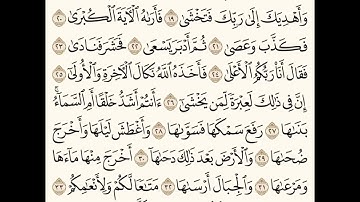 وَأَهْدِيَكَ إِلَىٰ رَبِّكَ فَتَخْشَىٰ ١٩ فَأَرَىٰهُ الْأَيَةَ الْكُبْرَىٰ ٢٠
فَكَذَّبَ وَعَصَىٰ ٢١ ثُمَّ أَدْبَرَ يَسْعَىٰ ٢٢ فَحَشَرَ فَنَادَىٰ ٢٣
فَقَالَ أَنَا۠ رَبُّكُمُ الْأَعْلَىٰ ٢٤ فَأَخَذَهُ اللَّهُ نَكَالَ الْآخِرَةِ وَالْأُولَىٰ ٢٥
إِنَّ فِي ذَٰلِكَ لَعِبْرَةً لِّمَن يَخْشَىٰ ٢٦ ءَأَنتُمْ أَشَدُّ خَلْقًا أَمِ السَّمَاءُ ۚ
بَنَىٰهَا ٢٧ رَفَعَ سَمْكَهَا فَسَوَّىٰهَا ٢٨ وَأَغْطَشَ لَيْلَهَا وَأَخْرَجَ
ضُحَىٰهَا ٢٩ وَالْأَرْضَ بَعْدَ ذَٰلِكَ دَحَىٰهَا ٣٠ أَخْرَجَ مِنْهَا مَاءَهَا
وَمَرْعَىٰهَا ٣١ وَالْجِبَالَ أَرْسَىٰهَا ٣٢ مَتَٰعًا لَّكُمْ وَلِأَنْعَٰمِكُمْ ٣٣